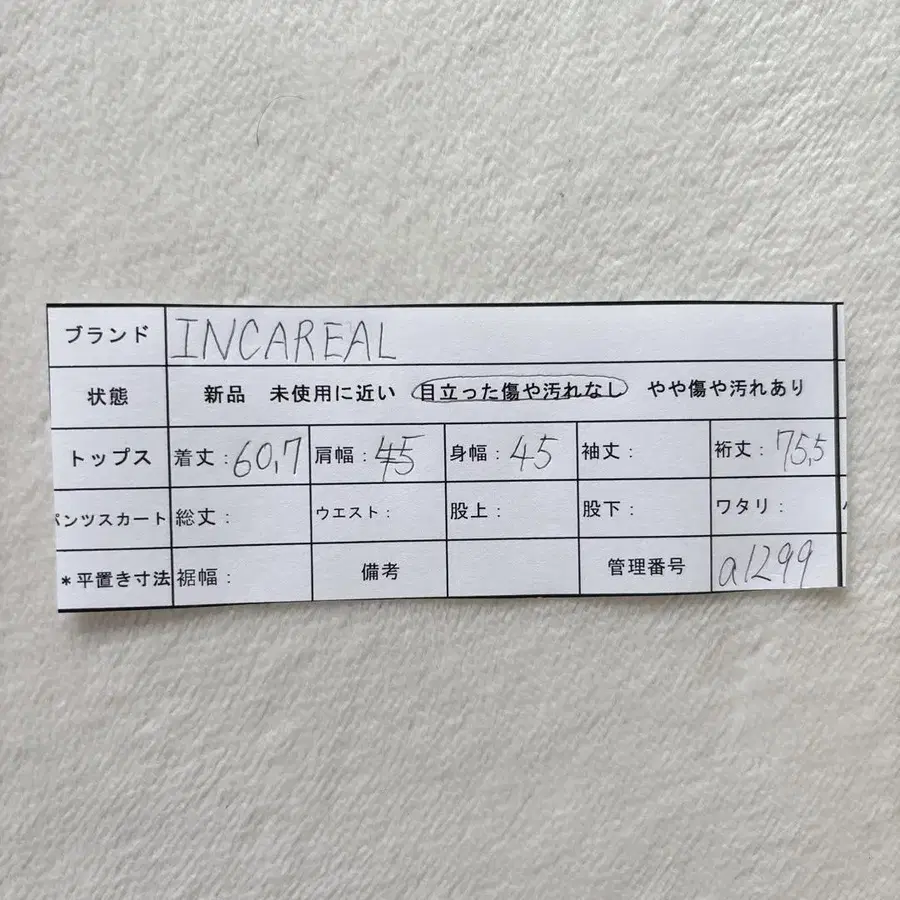 ブランド INCAREAL
状態 新品 未使用に近い 目立った傷や汚れなし やや傷や汚れあり
トップス 着丈:60,7 肩幅: 身幅:45 袖丈: 裄丈:75,5
パンツスカート 総丈: ウエスト: 股上: 股下: ワタリ:
*平置き寸法 裾幅: 備考 管理番号 a1299